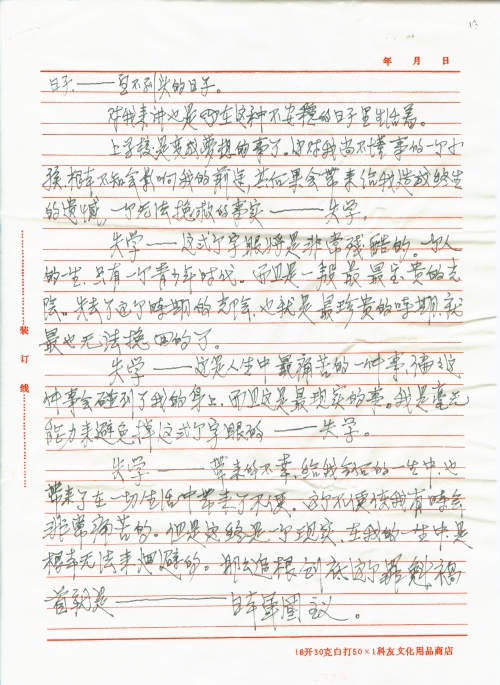 13
年 月 日
日子——望不到头的日子。
对我来讲也是的在这种不安稳的日子里生活着。
上学校是变成梦想的事了。也对我尚不懂事的一个小
孩，根本不知会影响我的前途，其后果会带来给我造成终生
的遗憾，一个无法挽救的事实———失学。
失学——这二个字眼将是非常残酷的。一个人
的一生，只有一个青少年时代。而且是一般最最宝贵的光
阴。失去了这个时期的光阴，也就是最珍贵的时期，就
最也无法挽回的了。
失学——这是人生中最痛苦的一件事，偏偏这
件事会碰到了我的身上，而且这是最现实的事。我是毫无
能力来避免掉这二个字眼的——失学。
失学———带来的不幸，给我今后的一生中，也
带来了在一切生活中带来了不便。这个不便使我有时会
非常痛苦的。但是这终是一个现实，在我的一生中，是
根本无法来回避的。那么追根到底这个罪魁祸
首就是————日本军国主义。
装订线
16开30克白打50×1科友文化用品商店